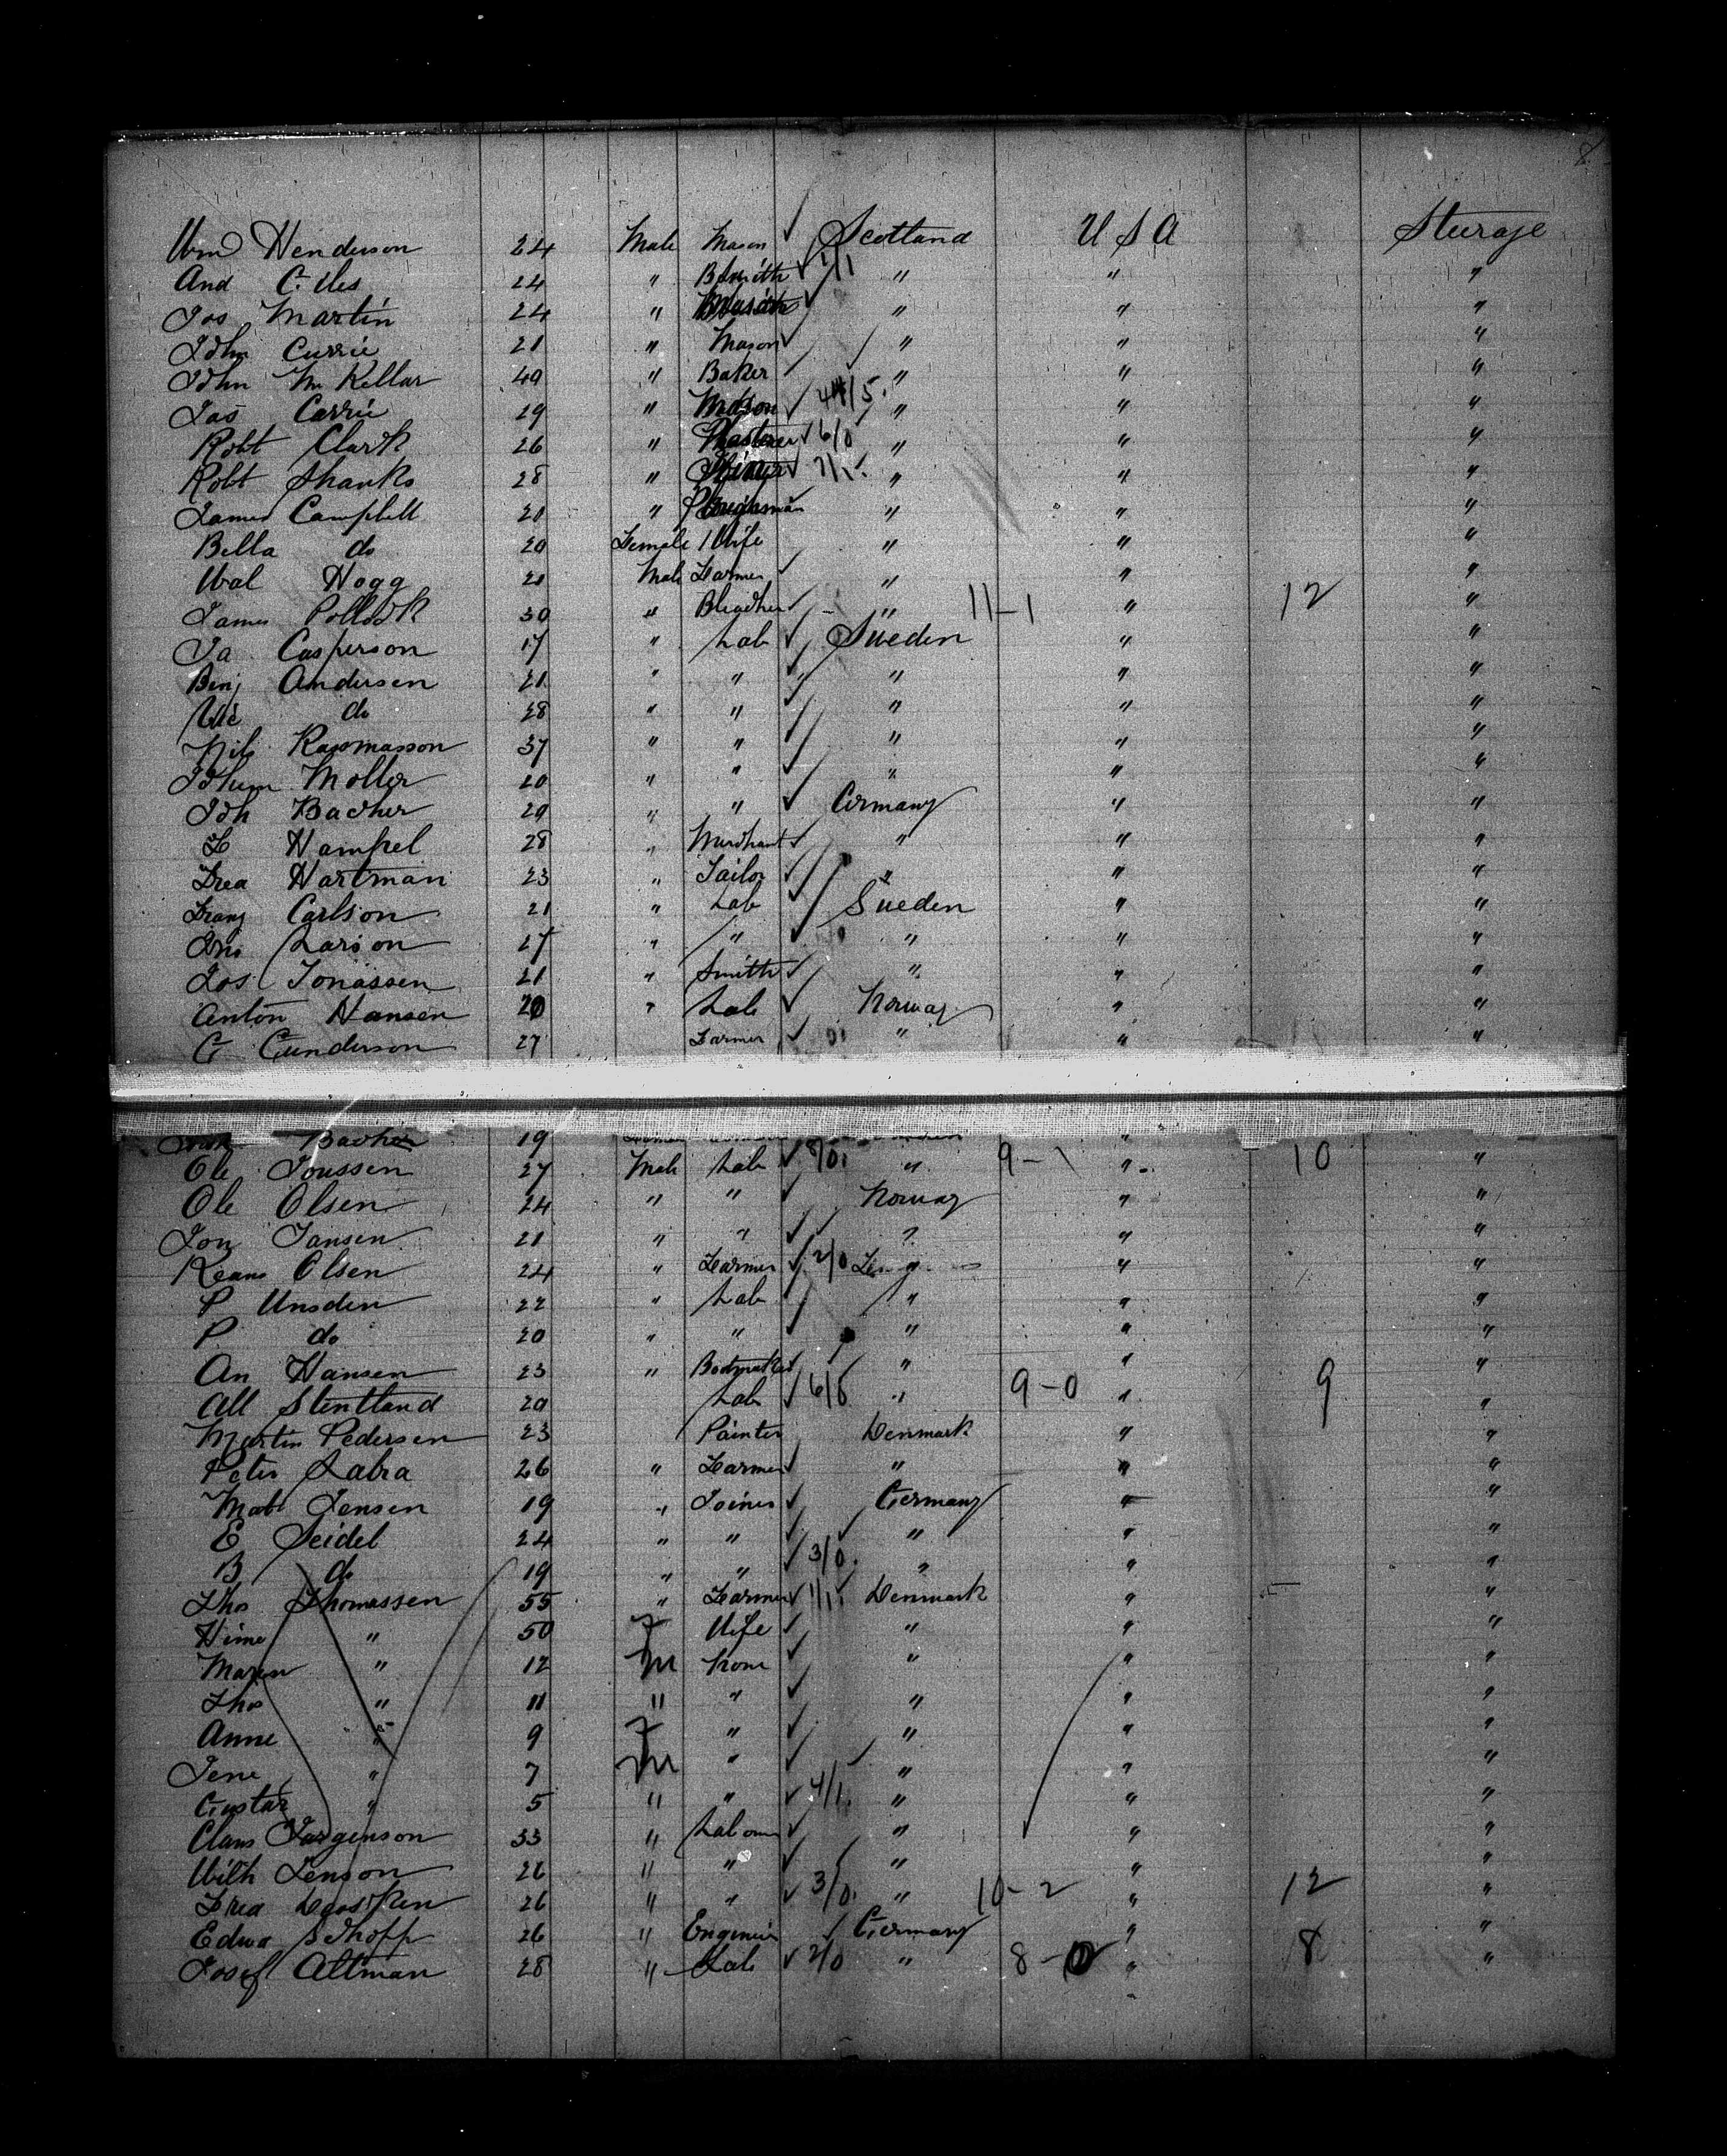 8
Wm Henderson 24 Male Mason Scotland U S A Steerage
And Giles 24 " B Smith 1/1 " " "
Jos Martin 24 " " " "
John Currie 21 " Mason " " "
John McKellar 40 " Baker " " "
Jas Currie 29 " Mason 4/5 " " "
Robt Clark 26 " Plasterer 6/0 " " "
Robt Shanks 28 " 7/1 " " "
James Campbell 21 " Ploughman " " "
Bella do 20 Female Wife " " "
Wal Hogg 21 Male Farmer " " "
James Pollock 30 " Bleacher " 11-1 " 12 "
Ja Casperson 17 " Lab Sweden " "
Benj Andersen 21 " " " " "
do 28 " " " " "
Nils Rasmasson 37 " " " " "
Moller 20 " " " " "
Joh Bacher 29 " " Germany " "
F Hampel 28 " Merchant " " "
Fred Hartman 23 " Tailor " " "
Franz Carlson 21 " Lab Sweden " "
Jno Larson 27 " " " " "
Jos Jonassen 21 " Smith " " "
Anton Hansen 20 " Lab Norway " "
G Gunderson 27 Farmer " " "
Bacher 19 "
Ole Joussen 27 Male Lab 8/0 " 9-1 " 10 "
Ole Olsen 24 " " Norway " "
Jon Jansen 21 " " " " "
Olsen 24 " Farmer 2/0 " "
P Unsden 22 " Lab " " "
P do 20 " " " " "
An Hansen 23 " Bootmaker " " "
All Stentland 20 Lab 6/0 " 9-0 " 9 "
Martin Pedersen 23 Painter Denmark " "
Peter Labra 26 " Farmer " " "
Mats Jensen 19 " Joiner Germany " "
E Seidel 24 " " " " "
B do 19 " " 3/0 " " "
Thos Thomassen 55 " Farmer 1/1 Denmark " "
Hime " 50 F Wife " " "
Maren " 12 M None " " "
Thos " 11 " " " " "
Anne " 9 F " " " "
Jene " 7 M " " " "
Gustav " 5 " " 4/1 " " "
Claus Jorgenson 33 " Labourer " " "
Wilh Jenson 26 " " " " "
Fred 26 " " 3/0 " 10-2 " 12 "
Edwa Schopp 26 " Engineer Germany " "
Josef Altman 28 " Lab 2/0 " 8-0 " 8 "